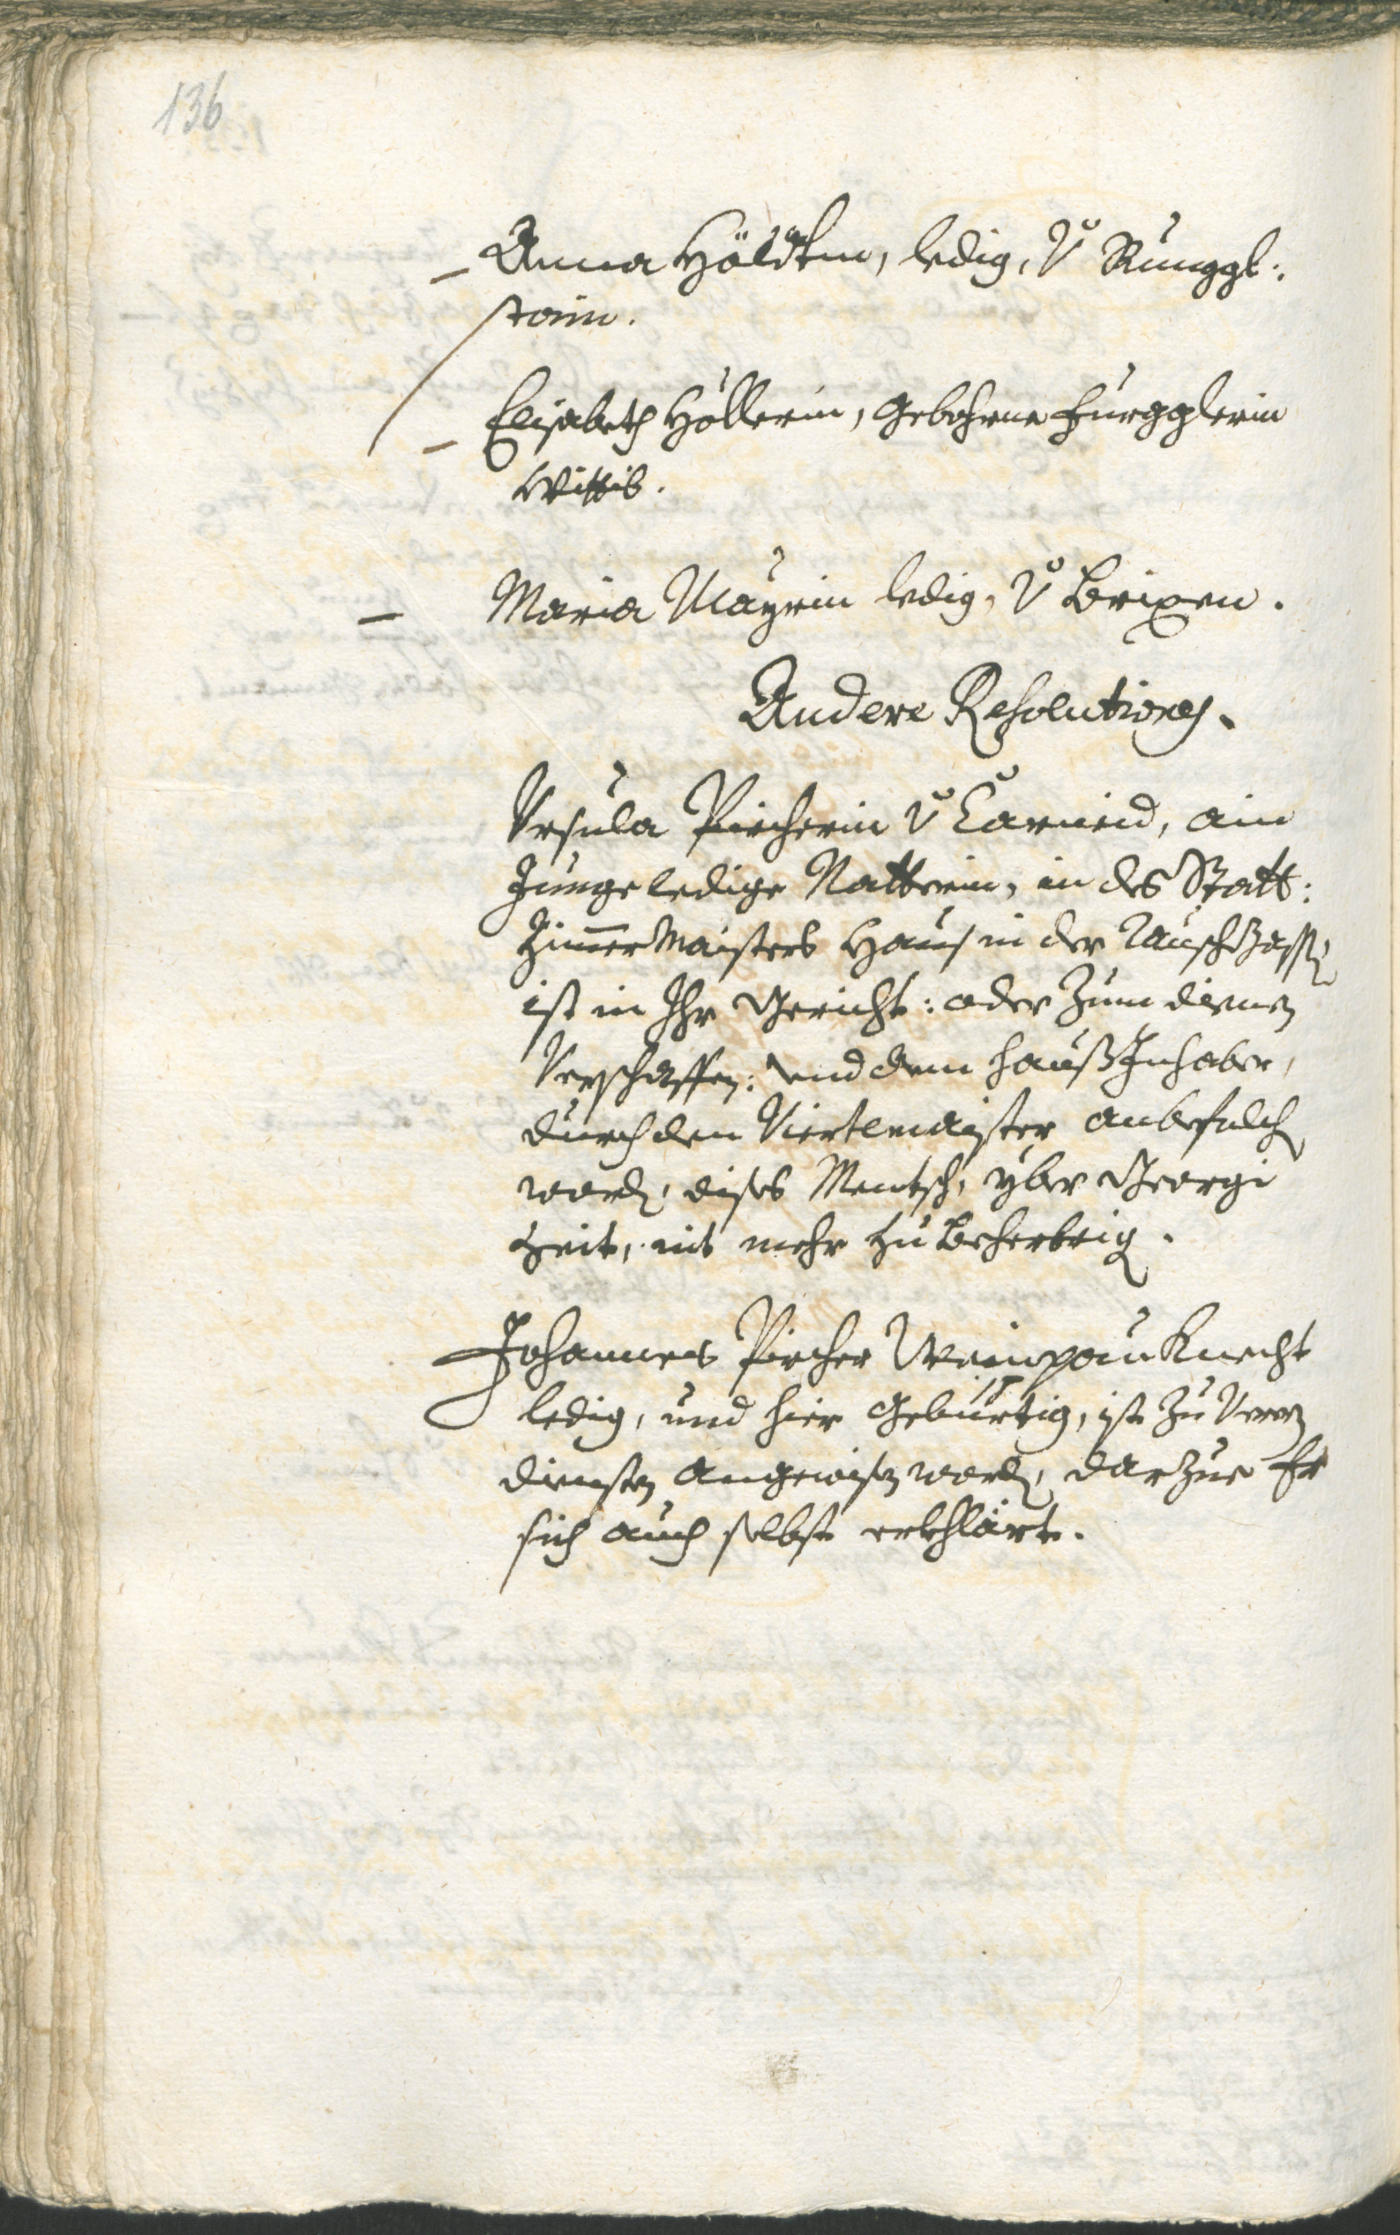 136
Anna Höldtin, ledig, v Runggl:
stain.
Elisabeth Höllerin, gebohrne Furgglerin
Wittib.
Maria Mayrin ledig, v Brixen.
Andere Resolutiones.
Ursula Pircherin v Carneid, ain
Junge ledige Natterin, in des Statt:
Zimmermaisters Haus in der
ist in Ihr Gericht: oder zum dienen
verschaffen: und dem haußInhaber,
durch den Viertlmaister anbefolchen
worden, dises Mentsch, yber Georgi
Zeit, nit mehr zu beherbrigen.
Johannes Pircher Weinpau Knecht
ledig, und hier gebürtig, ist zu
diensten angewisen worden, darzue Er
sich auch selbst erkhlärt.